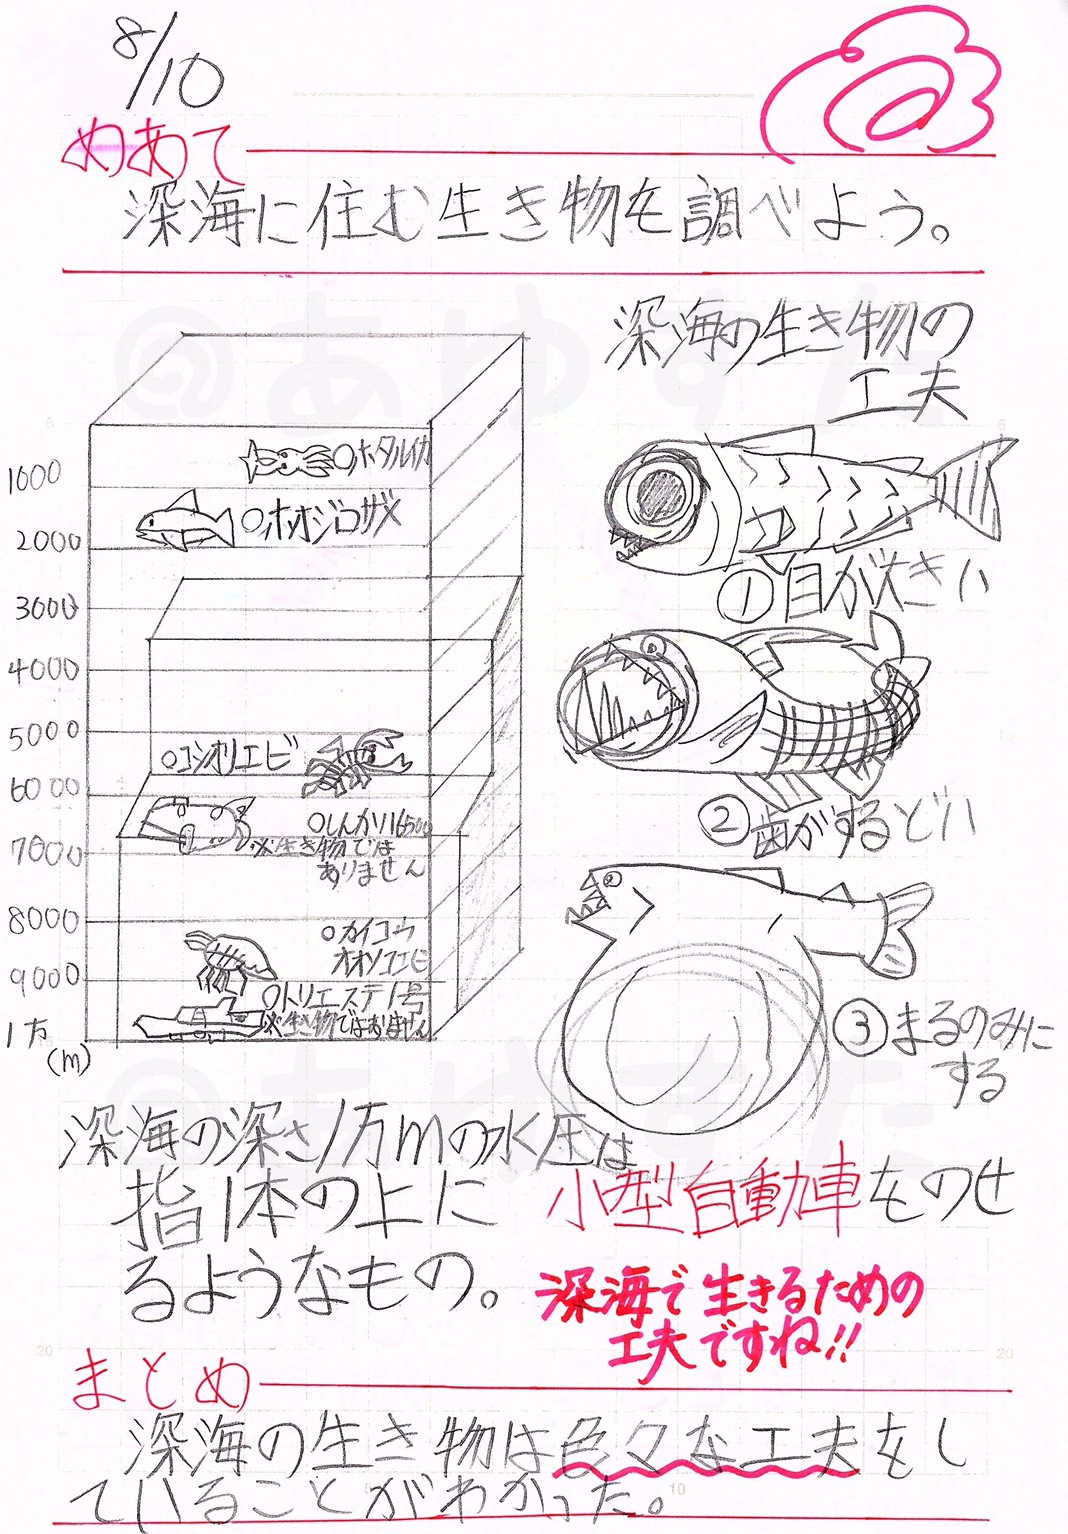 8/10
めあて
深海に住む生き物を調べよう。
深海の生き物の
工夫
1000
2000
3000
4000
5000
6000
7000
8000
9000
1万
(m)
○ホタルイカ
○ホオジロザメ
○コシオリエビ
○しんかい6500
※生き物では
ありません
○カイコウ
オオソコエビ
○トリエステ1号
※生き物ではありません
①目が大きい
②歯がするどい
③まるのみに
する
深海の深さ1万mの水圧は
指1本の上に小型自動車をのせ
るようなもの。
深海で生きるための
工夫ですね!!
まとめ
深海の生き物は色々な工夫をし
ていることがわかった。
@あゆすた
@あゆすた
5
5
20
20
10